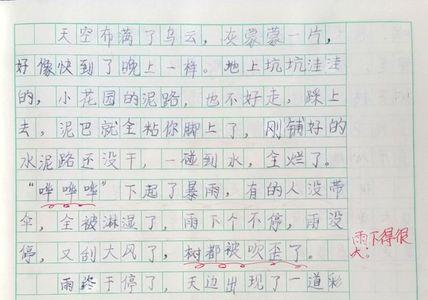 天空布满了乌云，灰蒙蒙一片，
好像快到了晚上一样。地上坑坑洼洼
的，小花园的泥路，也不好走，踩上
去，泥巴就全粘你脚上了，刚铺好的
水泥路还没干，一碰到水，全烂了。
“哗哗哗”下起了暴雨，有的人没带
伞，全被淋湿了，雨下个不停，雨没
停，又刮大风了，树都被吹歪了。
雨下得很
大。
雨终于停了，天边出现了一道彩